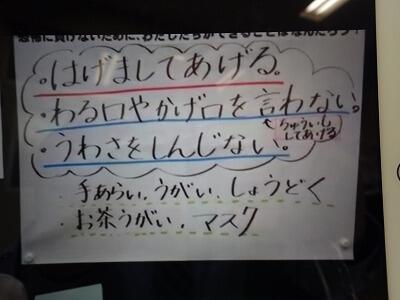 に負けないために、わたしたちができることはなんだろう?
・はげましてあげる。
・わる口やかげ口を言わない。
←ちゅういし
してあげる
・うわさをしんじない。
・手あらい、うがい、しょうどく
・お茶うがい、マスク